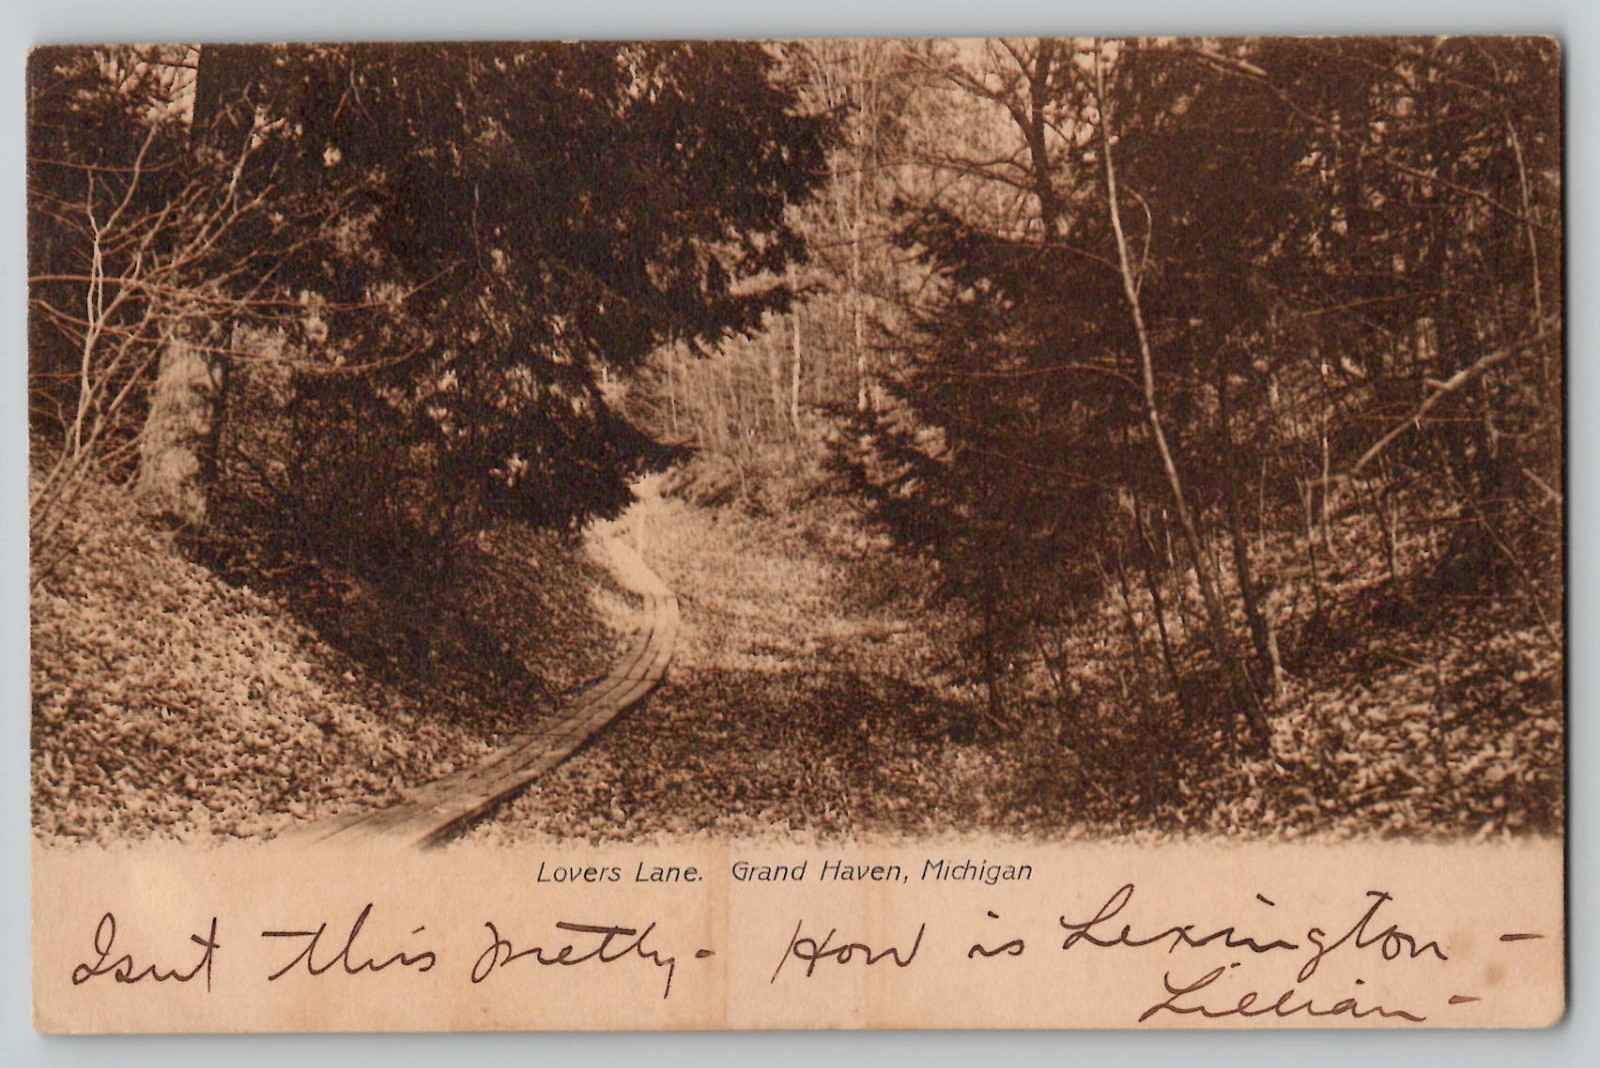 Lovers Lane. Grand Haven, Michigan
Isnt this pretty - How is Lexington -
Lillian -